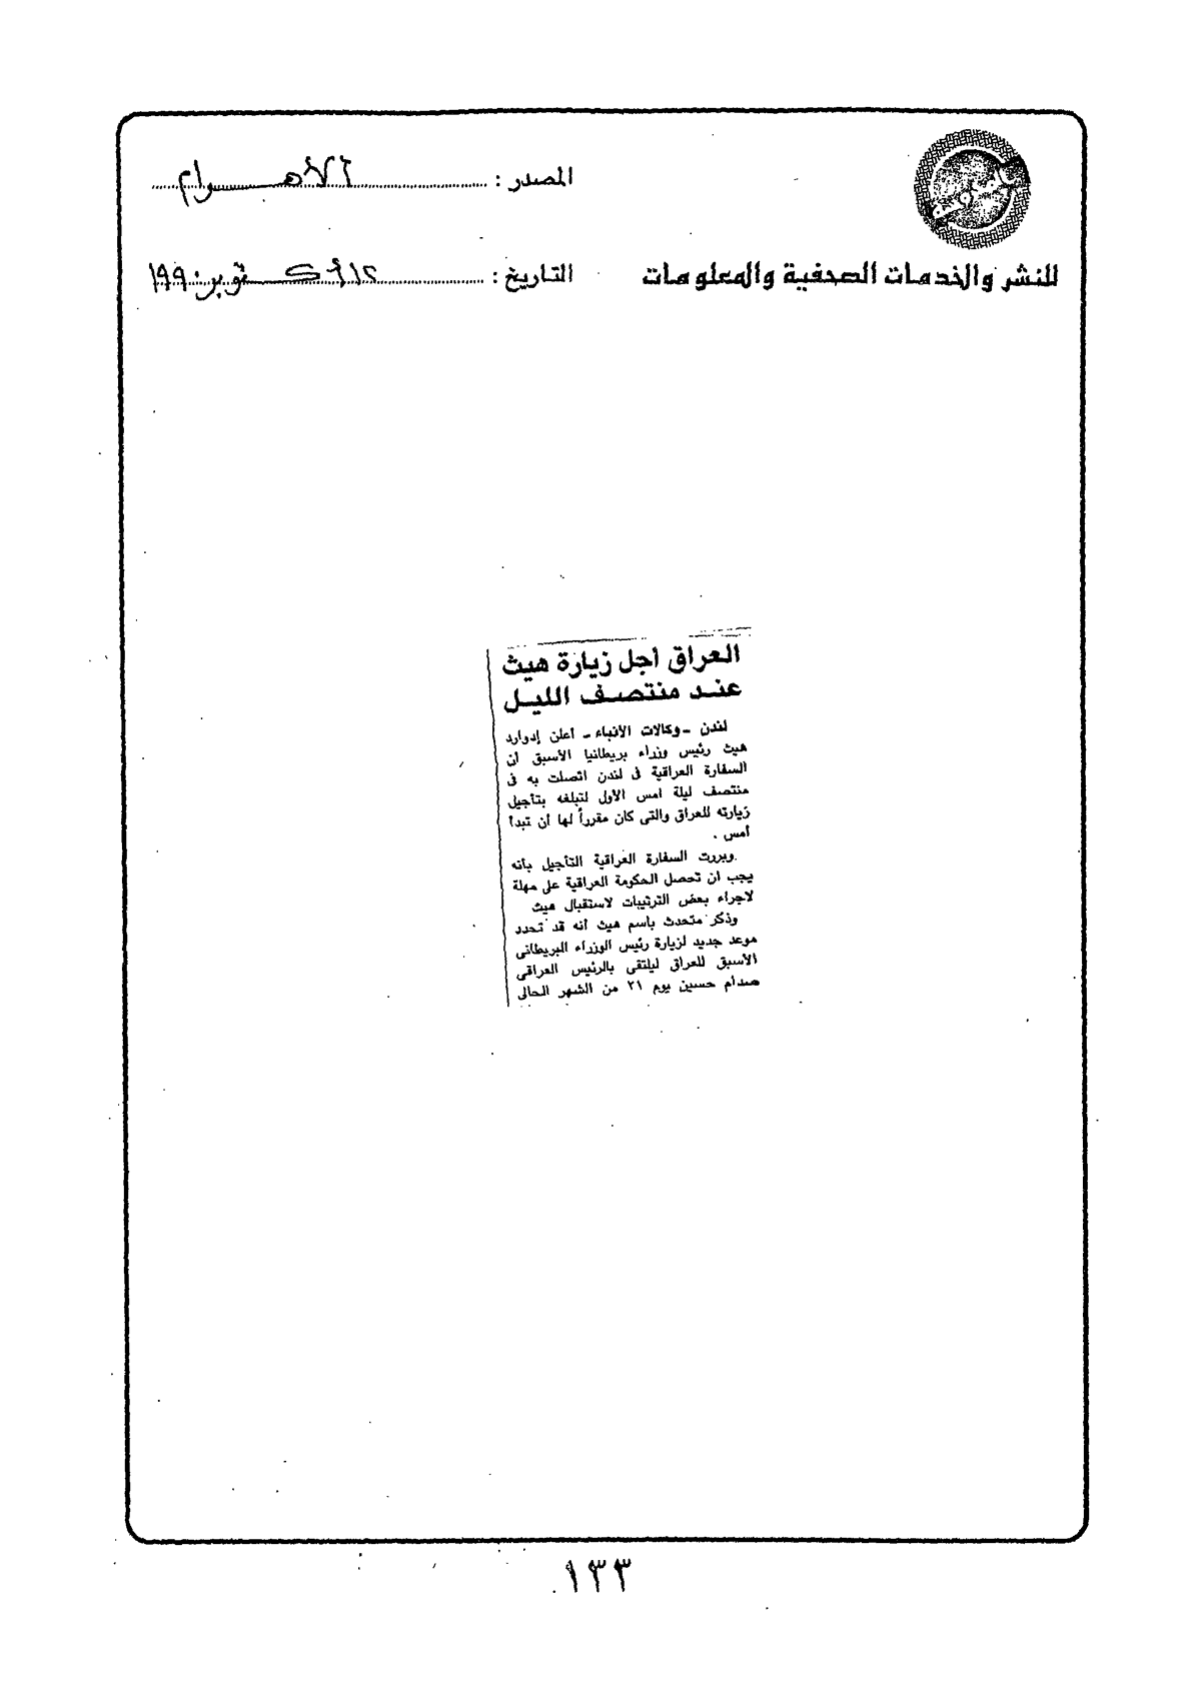 المصدر : الأهرام
للنشر والخدمات الصحفية والمعلومات
التاريخ : ١٢ أكتوبر ١٩٩٠
العراق أجل زيارة هيث
عند منتصف الليل
لندن - وكالات الأنباء - أعلن إدوارد
هيث رئيس وزراء بريطانيا الأسبق أن
السفارة العراقية فى لندن اتصلت به فى
منتصف ليلة امس الأول لتبلغه بتأجيل
زيارته للعراق والتى كان مقرراً لها أن تبدأ
أمس .
وبررت السفارة العراقية التأجيل بأنه
يجب ان تحصل الحكومة العراقية على مهلة
لاجراء بعض الترتيبات لاستقبال هيث
وذكر متحدث باسم هيث أنه قد تحدد
موعد جديد لزيارة رئيس الوزراء البريطانى
الأسبق للعراق ليلتقى بالرئيس العراقى
صدام حسين يوم ٢١ من الشهر الحالى
١٣٣